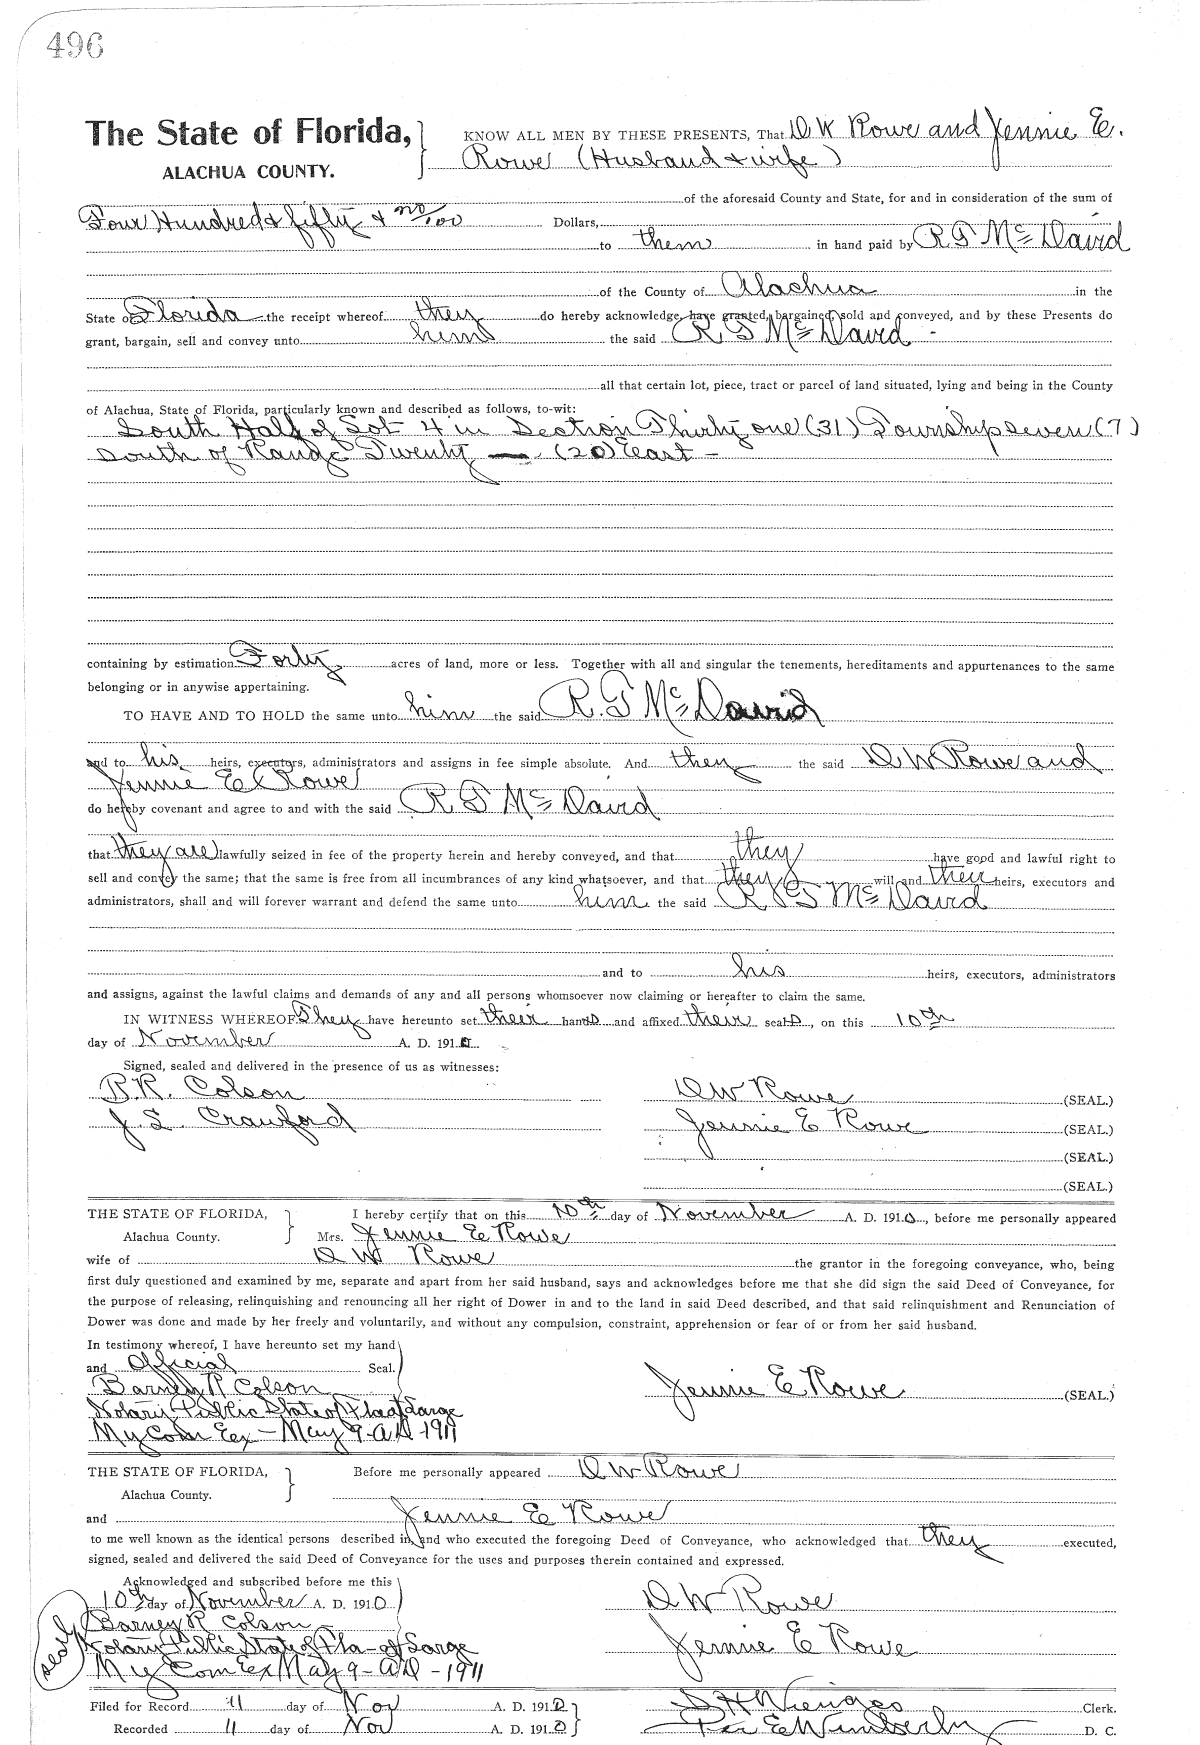 496
The State of Florida, KNOW ALL MEN BY THESE PRESENTS, That D W Rowe and Jennie E.
ALACHUA COUNTY. Rowe (Husband & wife)
of the aforesaid County and State, for and in consideration of the sum of
Four Hundred & fifty & no/100 Dollars,
to them in hand paid by R T McDavid
of the County of Alachua in the
State of Florida the receipt whereof they do hereby acknowledge, have granted, bargained, sold and conveyed, and by these Presents do
grant, bargain, sell and convey unto him the said R T McDavid -
all that certain lot, piece, tract or parcel of land situated, lying and being in the County
of Alachua, State of Florida, particularly known and described as follows, to-wit:
South Half of Lot 4 in Section Thirty one (31) Township seven (7)
South of Range Twenty — (20) East -
containing by estimation Forty acres of land, more or less. Together with all and singular the tenements, hereditaments and appurtenances to the same
belonging or in anywise appertaining.
TO HAVE AND TO HOLD the same unto him the said R. T McDavid
and to his heirs, executors, administrators and assigns in fee simple absolute. And they the said D W Rowe and
Jennie E Rowe
do hereby covenant and agree to and with the said R T McDavid
that they are lawfully seized in fee of the property herein and hereby conveyed, and that they have good and lawful right to
sell and convey the same; that the same is free from all incumbrances of any kind whatsoever, and that they will and their heirs, executors and
administrators, shall and will forever warrant and defend the same unto him the said R T McDavid
and to his heirs, executors, administrators
and assigns, against the lawful claims and demands of any and all persons whomsoever now claiming or hereafter to claim the same.
IN WITNESS WHEREOF They have hereunto set their hands and affixed their seals, on this 10th
day of November A. D. 1910
Signed, sealed and delivered in the presence of us as witnesses:
B.R. Colson D W Rowe (SEAL.)
J. L. Crawford Jennie E Rowe (SEAL.)
(SEAL.)
(SEAL.)
THE STATE OF FLORIDA, I hereby certify that on this 10th day of November A. D. 1910, before me personally appeared
Alachua County. Mrs. Jennie E Rowe
wife of D W Rowe the grantor in the foregoing conveyance, who, being
first duly questioned and examined by me, separate and apart from her said husband, says and acknowledges before me that she did sign the said Deed of Conveyance, for
the purpose of releasing, relinquishing and renouncing all her right of Dower in and to the land in said Deed described, and that said relinquishment and Renunciation of
Dower was done and made by her freely and voluntarily, and without any compulsion, constraint, apprehension or fear of or from her said husband.
In testimony whereof, I have hereunto set my hand
and Official Seal.
Barney R Colson Jennie E Rowe (SEAL.)
Notary Public State of Fla at Large
My Com Ex - May 9 - AD - 1911
THE STATE OF FLORIDA, Before me personally appeared D W Rowe
Alachua County.
and Jennie E Rowe
to me well known as the identical persons described in, and who executed the foregoing Deed of Conveyance, who acknowledged that they executed,
signed, sealed and delivered the said Deed of Conveyance for the uses and purposes therein contained and expressed.
Acknowledged and subscribed before me this
10th day of November A. D. 1910 D W Rowe
Barney R Colson
seal Notary Public State of Fla - at Large Jennie E Rowe
My Com Ex May 9 - AD - 1911
Filed for Record 11 day of Nov A. D. 1910 S H Wienges Clerk.
Recorded 11 day of Nov A. D. 1910 Per E Wimberly D. C.